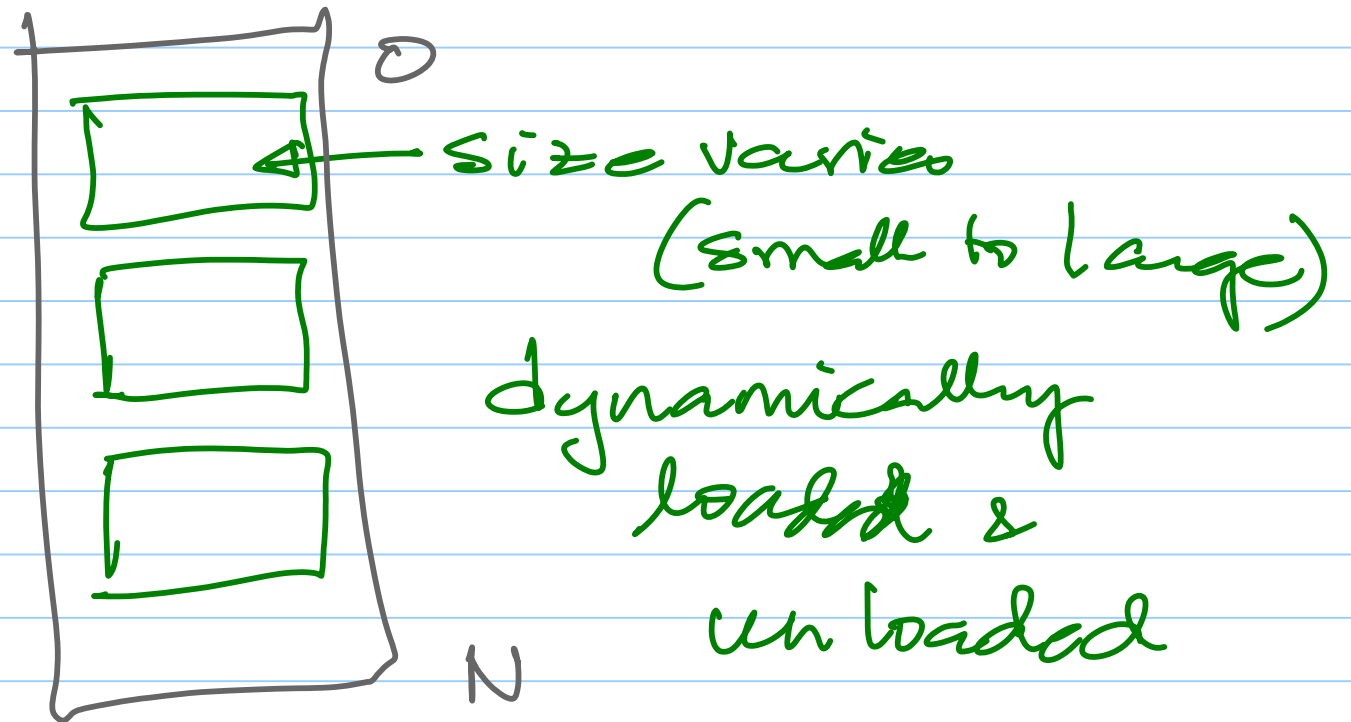 0
size varies
(small to large)
dynamically
loaded &
unloaded
N